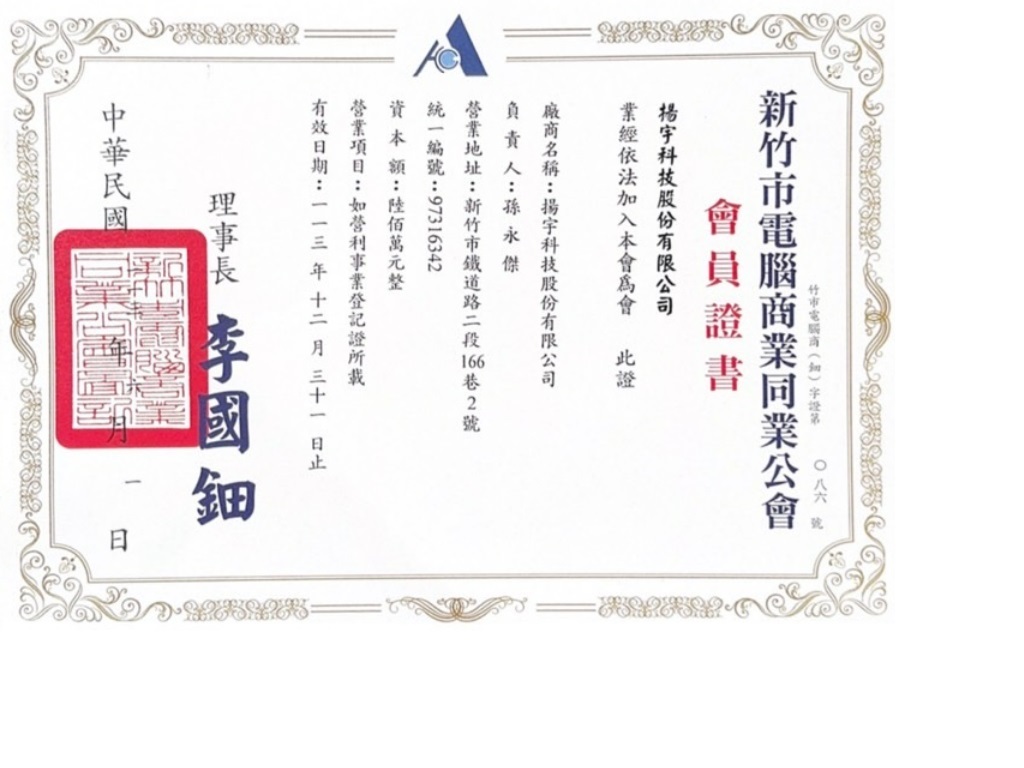 竹市電腦商（鈿）字證第 〇八六 號
新竹市電腦商業同業公會
會員證書
揚宇科技股份有限公司
業經依法加入本會爲會 此證
廠商名稱：揚宇科技股份有限公司
負責人：孫永傑
營業地址：新竹市鐵道路二段166巷2號
統一編號：97316342
資本額：陸佰萬元整
營業項目：如營利事業登記證所載
有效日期：一一三年十二月三十一日止
理事長 李國鈿
中華民國 年六月一日